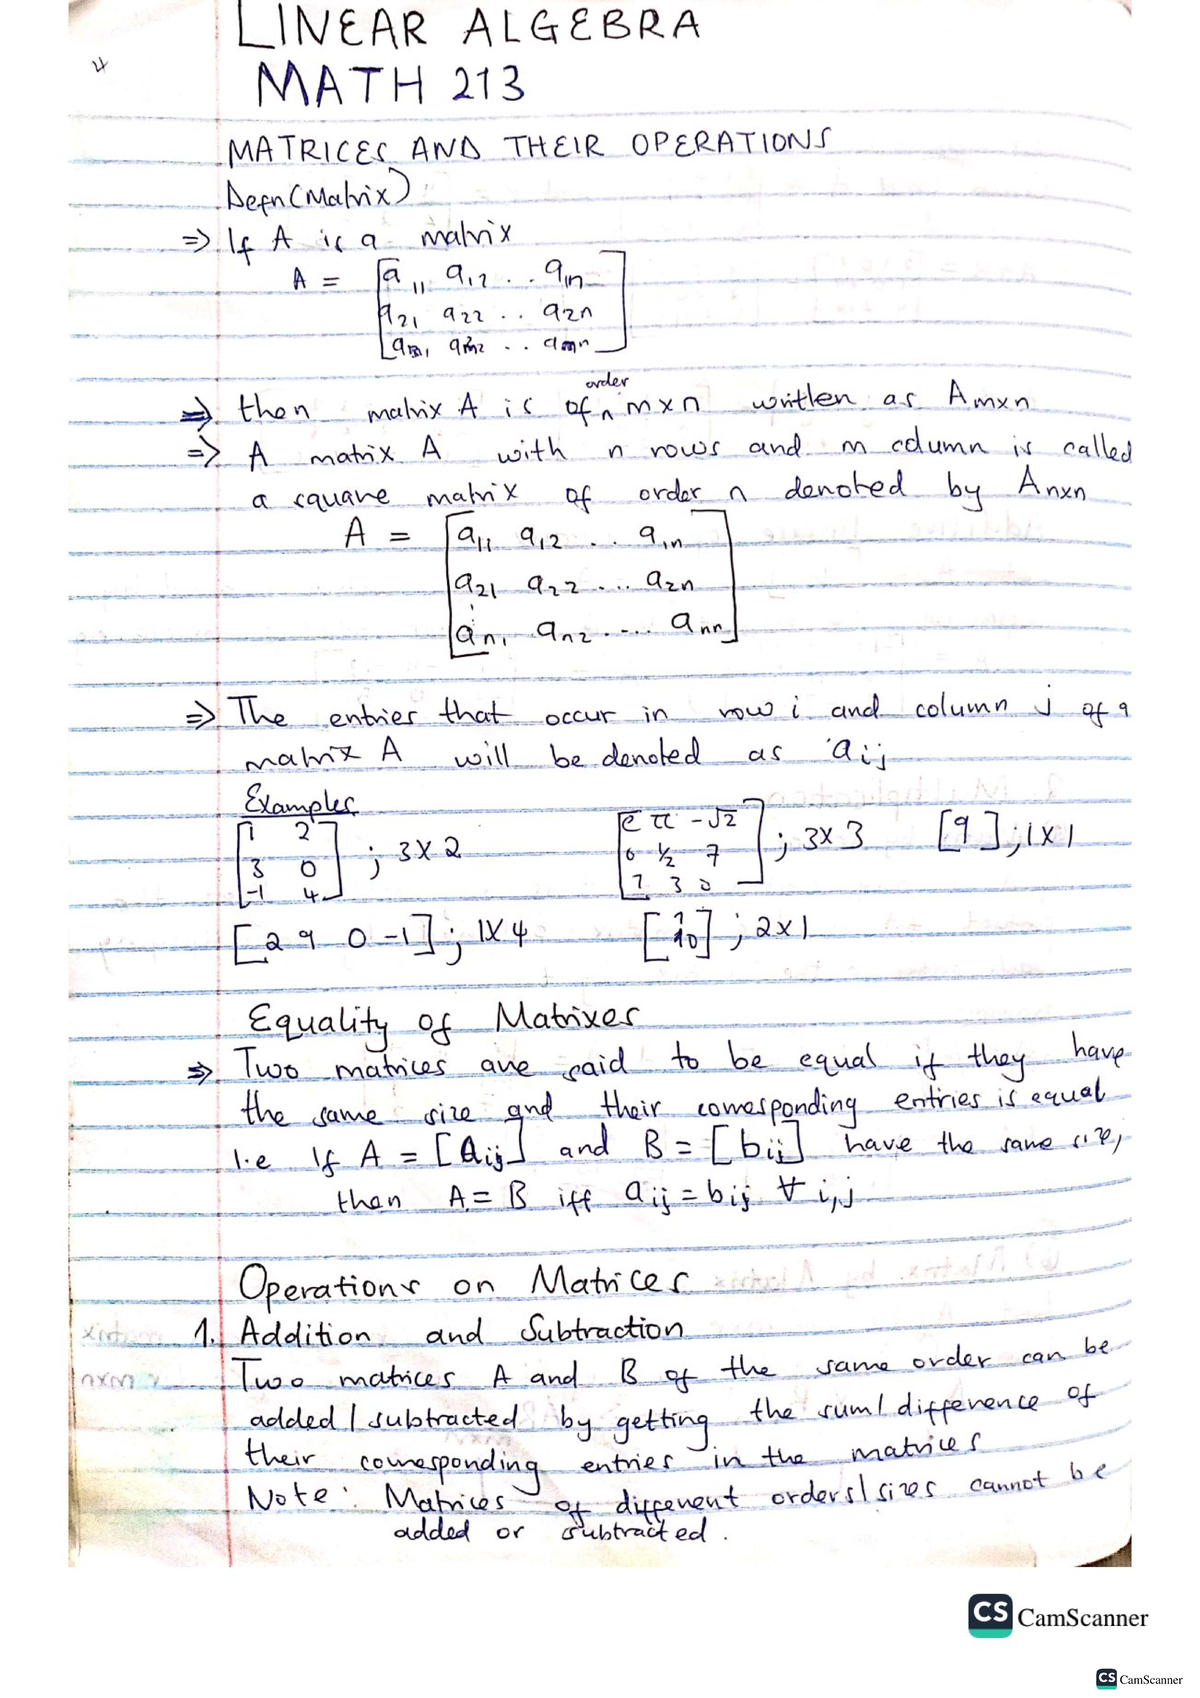 LINEAR ALGEBRA
MATH 213
MATRICES AND THEIR OPERATIONS
Defn (Matrix)
⇒ If A is a matrix
A = [a11 a12 .. a1n
a21 a22 .. a2n
am1 am2 .. amn]
⇒ then matrix A is of order m×n written as Amxn
⇒ A matrix A with n rows and m column is called
a square matrix of order n denoted by Anxn
A = [a11 a12 .. a1n
a21 a22 .... a2n
an1 an2 .... ann]
⇒ The entries that occur in row i and column j of a
matrix A will be denoted as aij
Examples
[1 2
3 0
-1 4] ; 3×2 [e π -√2
0 ½ 7
7 3 0] ; 3×3 [9] ; 1×1
[2 9 0 -1] ; 1×4 [ 10] ; 2×1
Equality of Matrixes
⇒ Two matrices are said to be equal if they have
the same size and their corresponding entries is equal
I.e If A = [aij] and B = [bij] have the same size,
then A = B iff aij = bij ∀ i,j
Operations on Matrices
1. Addition and Subtraction
Two matrices A and B of the same order can be
added/subtracted by getting the sum/difference of
their corresponding entries in the matrices
Note: Matrices of different orders/sizes cannot be
added or subtracted.
CS CamScanner
CS CamScanner